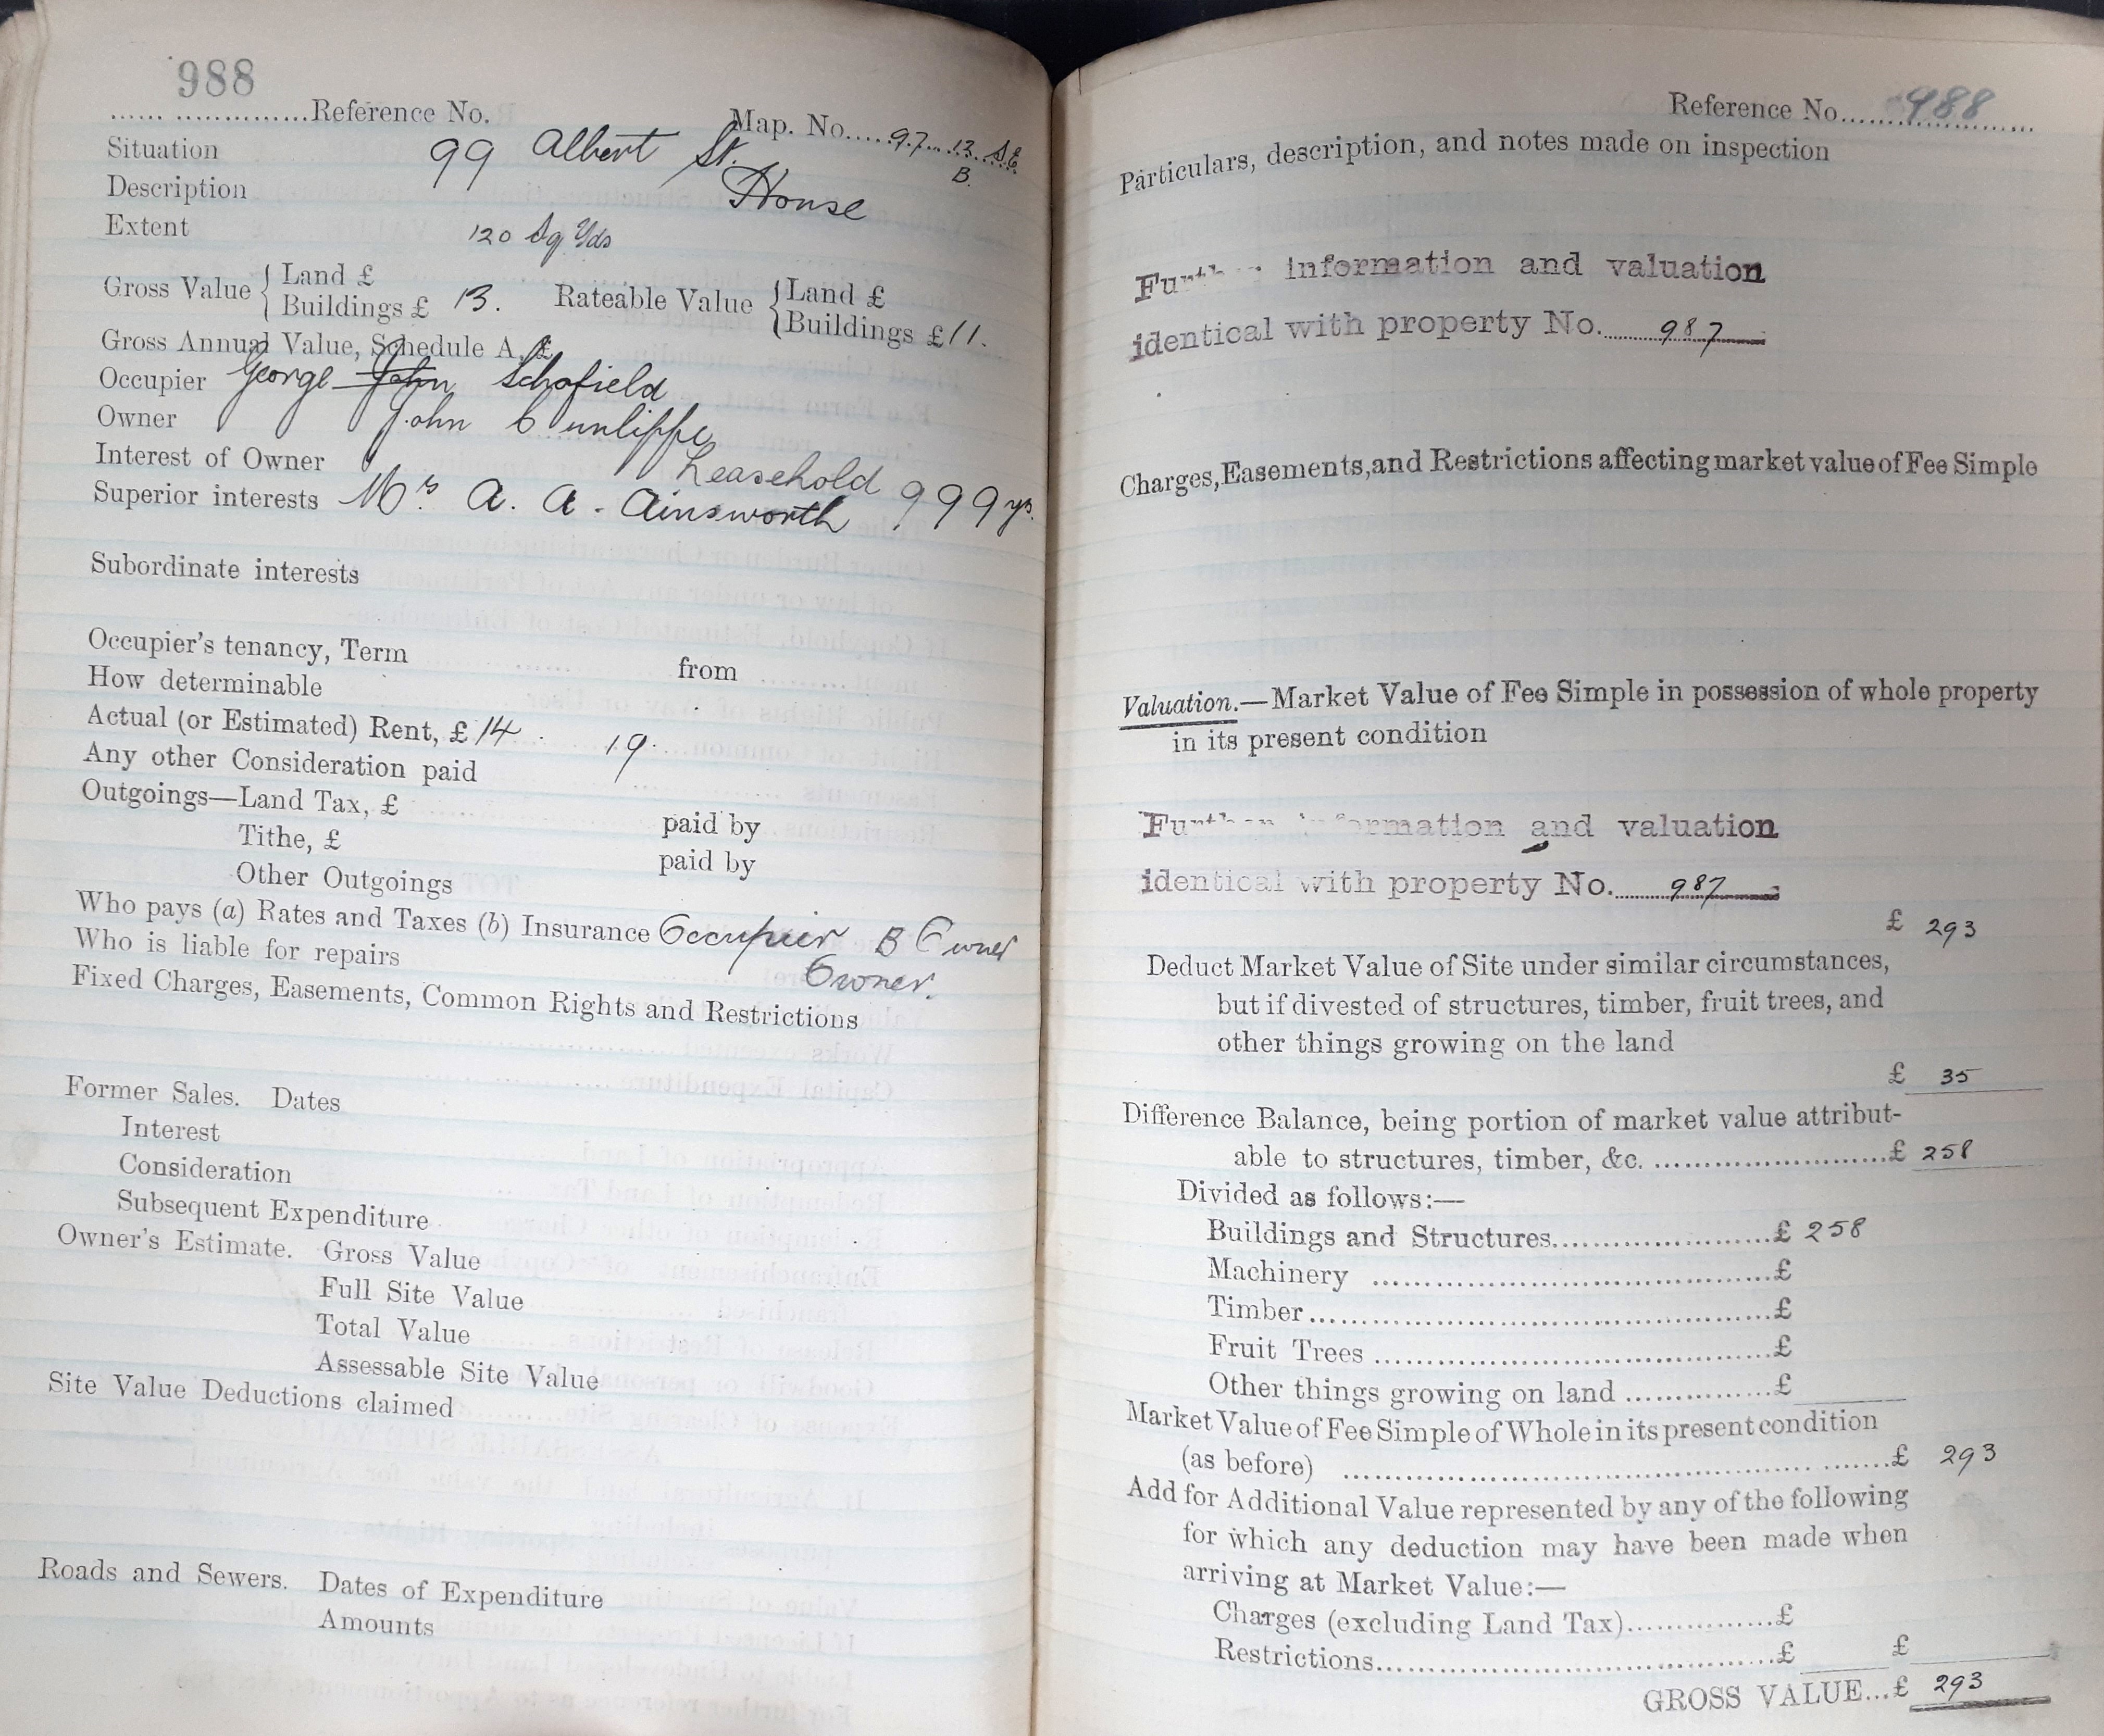 988
Reference No.
Map. No. 97 13 S.E.
B.
Situation 99 Albert St.
Description House
Extent 120 Sq Yds
Gross Value { Land £
Buildings £ 13.
Rateable Value { Land £
Buildings £ 11.
Gross Annual Value, Schedule A, £
Occupier George John Schofield
Owner John Cunliffe
Interest of Owner Leasehold 999 yrs.
Superior interests Mrs A. A. Ainsworth
Subordinate interests
Occupier's tenancy, Term from
How determinable
Actual (or Estimated) Rent, £ 14 . 19.
Any other Consideration paid
Outgoings—Land Tax, £ paid by
Tithe, £ paid by
Other Outgoings
Who pays (a) Rates and Taxes (b) Insurance Occupier B Owner
Who is liable for repairs Owner.
Fixed Charges, Easements, Common Rights and Restrictions
Former Sales. Dates
Interest
Consideration
Subsequent Expenditure
Owner's Estimate. Gross Value
Full Site Value
Total Value
Assessable Site Value
Site Value Deductions claimed
Roads and Sewers. Dates of Expenditure
Amounts
Reference No. 988
Particulars, description, and notes made on inspection
Further information and valuation
identical with property No. 987
Charges, Easements, and Restrictions affecting market value of Fee Simple
Valuation.—Market Value of Fee Simple in possession of whole property
in its present condition
Further information and valuation
identical with property No. 987
£ 293
Deduct Market Value of Site under similar circumstances,
but if divested of structures, timber, fruit trees, and
other things growing on the land
£ 35
Difference Balance, being portion of market value attribut-
able to structures, timber, &c. £ 258
Divided as follows:—
Buildings and Structures £ 258
Machinery £
Timber £
Fruit Trees £
Other things growing on land £
Market Value of Fee Simple of Whole in its present condition
(as before) £ 293
Add for Additional Value represented by any of the following
for which any deduction may have been made when
arriving at Market Value:—
Charges (excluding Land Tax) £
Restrictions £ £
GROSS VALUE...£ 293